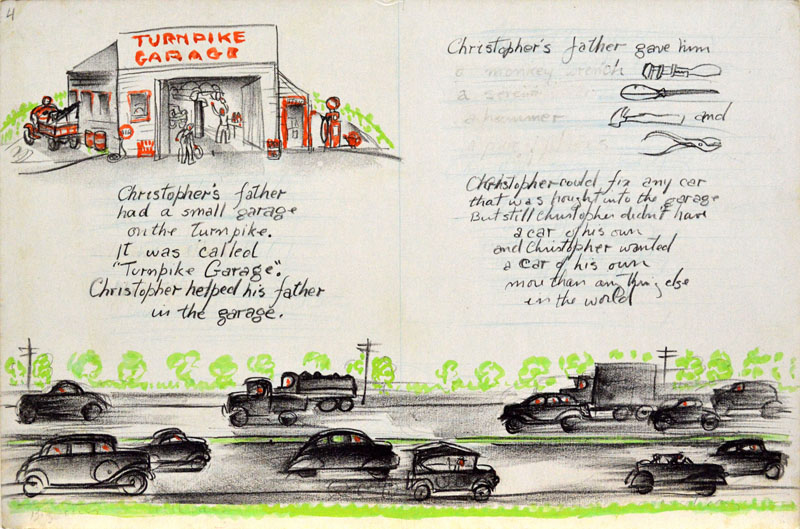 4
TURNPIKE
GARAGE
Christopher's father
had a small garage
on the Turnpike.
It was called
"Turnpike Garage".
Christopher helped his father
in the garage.
Christopher's father gave him
a monkey wrench
a screw
a hammer , and
Christopher could fix any car
that was bought into the garage
But still Christopher didn't have
a car of his own
and Christopher wanted
a car of his own
more than anything else
in the world